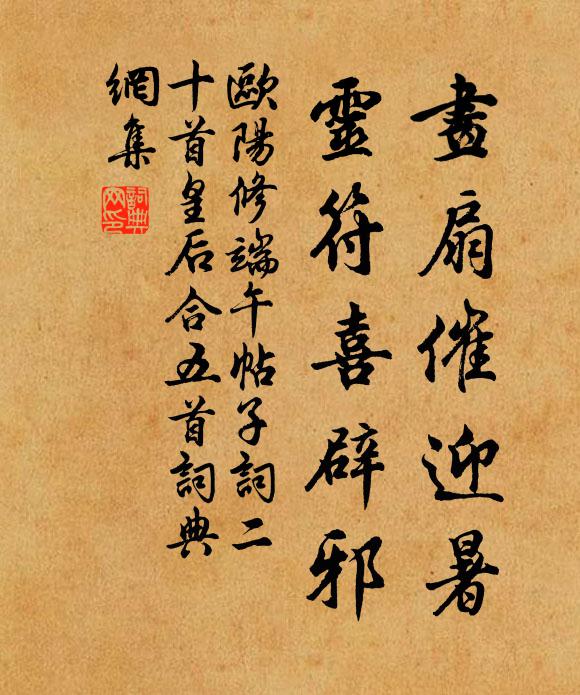 畫扇催迎暑
靈符喜辟邪
歐陽修端午帖子詞二
十首皇后合五首詞典
網集
詞典網印